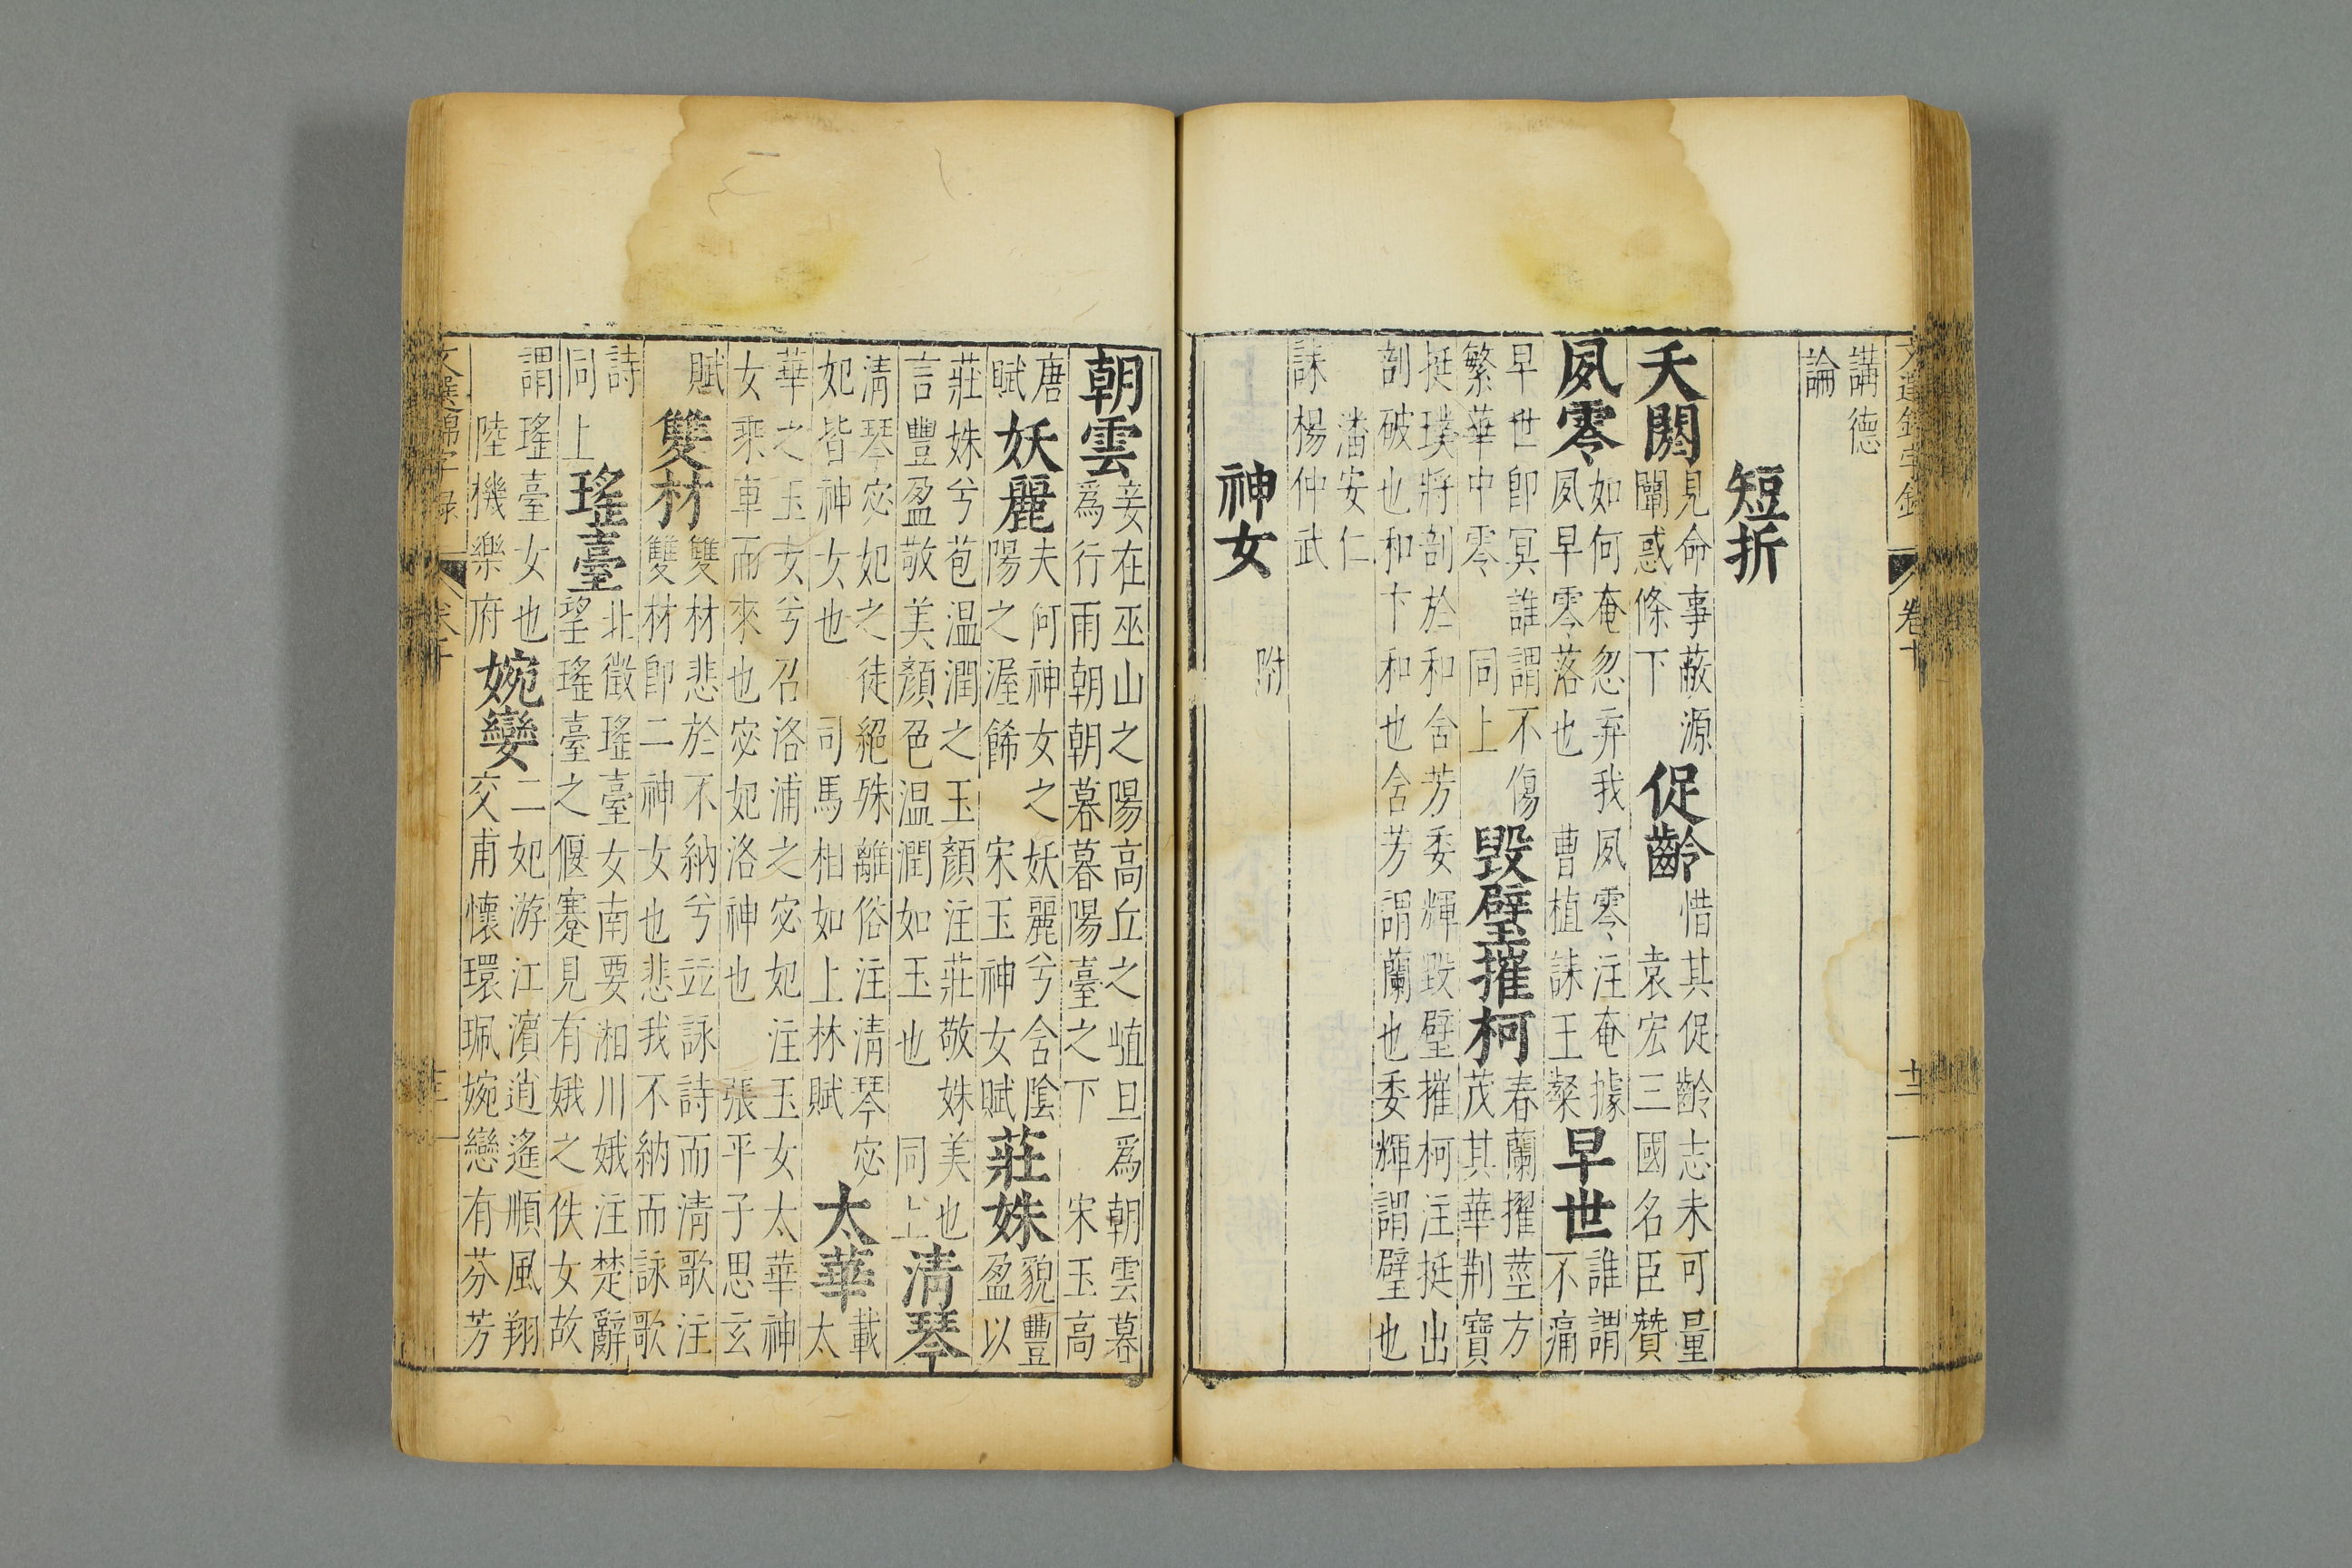 文選錦字錄 卷十 十二
講德
論
短折
夭閼 見命事蔽源
闈惑條下 促齡 惜其促齡志未可量
袁宏三國名臣贊
夙零 如何奄忽弃我夙零注奄據
夙早零落也 曹植誄王粲 早世 誰謂
不痛
早世卽冥誰謂不傷
繁華中零 同上 毀璧摧柯 春蘭擢莖方
茂其華荆寶
挺璞將剖於和含芳委輝毀璧摧柯注挺出
剖破也和卞和也含芳謂蘭也委輝謂璧也
潘安仁
誄楊仲武
神女 附
朝雲 妾在巫山之陽高丘之岨旦爲朝雲暮
爲行雨朝朝暮暮陽臺之下 宋玉高
唐
賦 妖麗 夫何神女之妖麗兮含陰
陽之渥飾 宋玉神女賦 莊姝 貌豐
盈以
莊姝兮苞温潤之玉顏注莊敬姝美也
言豐盈敬美顏色温潤如玉也 同上 清琴
清琴宓妃之徒絕殊離俗注清琴宓
妃皆神女也 司馬相如上林賦 太華 載
太
華之玉女兮召洛浦之宓妃注玉女太華神
女乘車而來也宓妃洛神也 張平子思玄
賦 雙材 雙材悲於不納兮竝詠詩而清歌注
雙材卽二神女也悲我不納而詠歌
詩
同上 瑤臺 北徵瑤臺女南要湘川娥注楚辭
望瑤臺之偃蹇見有娀之佚女故
謂瑤臺女也
陸機樂府 婉孌 二妃游江濱逍遙順風翔
交甫懷環珮婉戀有芬芳
文選錦字錄 卷十 十三